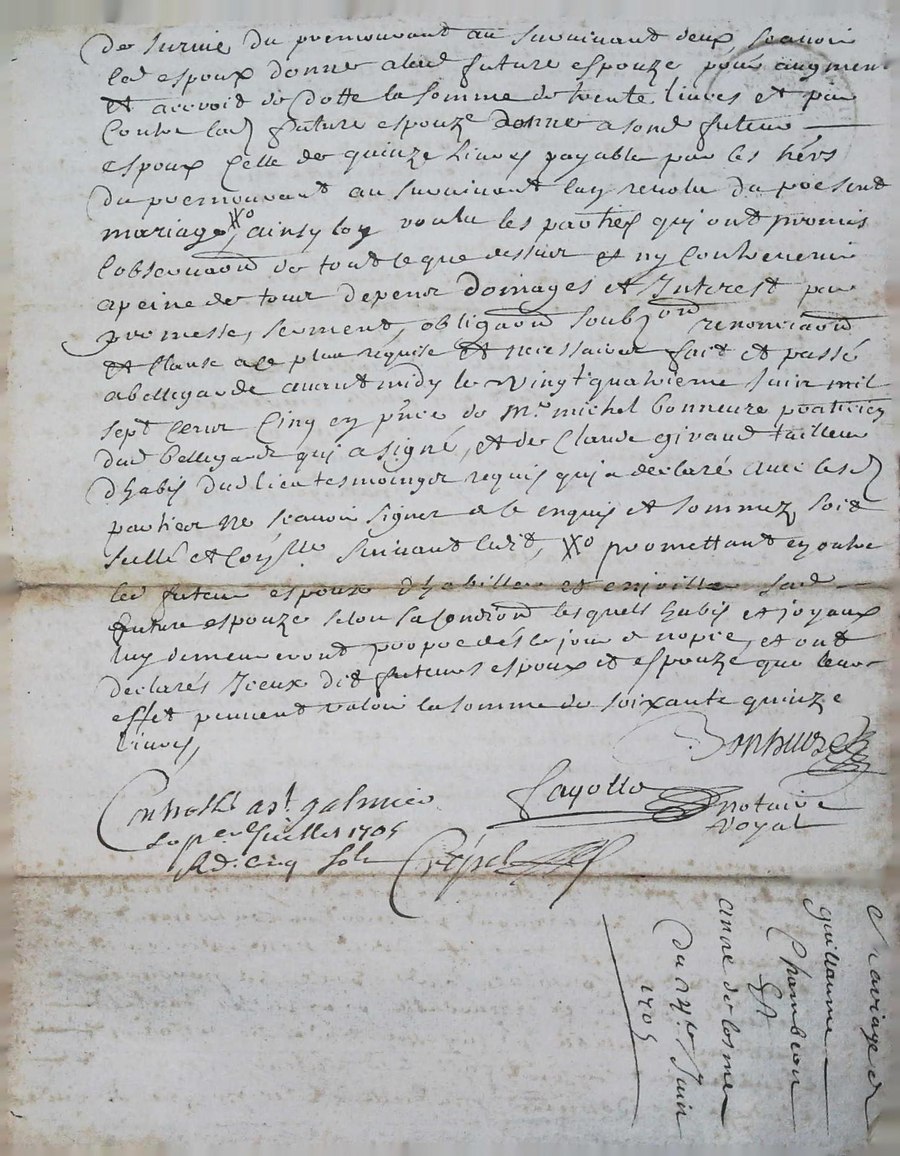 de survie du premourant au survivant deux, scavoir
led espoux donne alad future espouze pour augment
et accroid de dotte la somme de trente livres et par
contre lad future espouze donne a sond futeur
espoux celle de quinze livres payable par les hérs
du premourant au survivant lan revolu du present
mariage, XXo ainsy lon voulu les parties qui ont promis
lobservaon de tout le que dessus et ny contrevenir
a peine de tous despens domages et Interest par
promesse, serment, obligaon soubzon renonciaon
et clause a ce plus requise et necessaires fait et passé
a bellegarde avant midy le vingt quatrieme Juin mil
sept cens cinq en pnce de Mre michel bonneure praticien
dud bellegarde qui a signé, et de Claude giraud tailleur
dhabis dud lieu tesmoings requis qui a declaré avec lesd
parties ne scavoir signer de ce enquis et sommez, soit
sellé et coñllé suivant ledit, XXo promettant en outre
led futeur espoux dhabiller et enjoiller sad
future espouze selon sa condion lesquels habis et joyaux
luy demeureront propre dés le jour de nopce, et ont
declarés Iceux dit futeurs espoux et espouze que leurs
effet peuvent valoir la somme de soixante quinze
livres,
Bonneure
Fayolle
notaire
royal
Controllé a st galmier
le per Juillet 1705
Rd. cinq sols
Crespel
Mariage de
guillaume
Chambeon
Et
anne de losmer
Du 24e Juin
1705